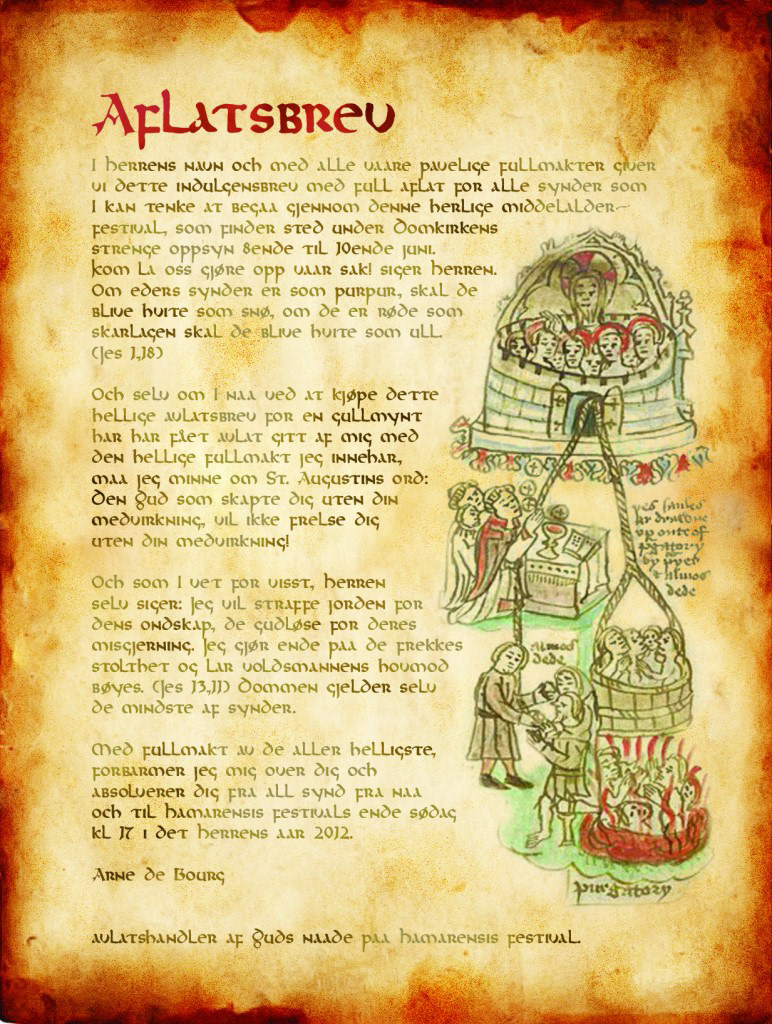 Aflatsbrev
I herrens navn och med alle vaare pavelige fullmakter giver
vi dette indulgensbrev med full aflat for alle synder som
I kan tenke at begaa gjennom denne herlige middelalder-
festival, som finder sted under Domkirkens
strenge oppsyn 8ende til 10ende juni.
Kom la oss gjøre opp vaar sak! siger herren.
Om eders synder er som purpur, skal de
blive hvite som snø, om de er røde som
skarlagen skal de blive hvite som ull.
(Jes 1,18)
Och selv om I naa ved at kjøpe dette
hellige avlatsbrev for en gullmynt
har har fået avlat gitt af mig med
den hellige fullmakt jeg innehar,
maa jeg minne om St. Augustins ord:
Den Gud som skapte dig uten din
medvirkning, vil ikke frelse dig
uten din medvirkning!
Och som I vet for visst, herren
selv siger: Jeg vil straffe jorden for
dens ondskap, de gudløse for deres
misgjerning. Jeg gjør ende paa de frekkes
stolthet og lar voldsmannens hovmod
bøyes. (Jes 13,11) Dommen gjelder selv
de mindste af synder.
Med fullmakt av de aller helligste,
forbarmer jeg mig over dig och
absolverer dig fra all synd fra naa
och til hamarensis festivals ende sødag
kl 17 i det herrens aar 2012.
Arne de Bourg
avlatshandler af Guds naade paa hamarensis festival.
yes saules
ar drawne
up oute of
purgatory
by pryer
& almos
dede
almos
dede
purgatory